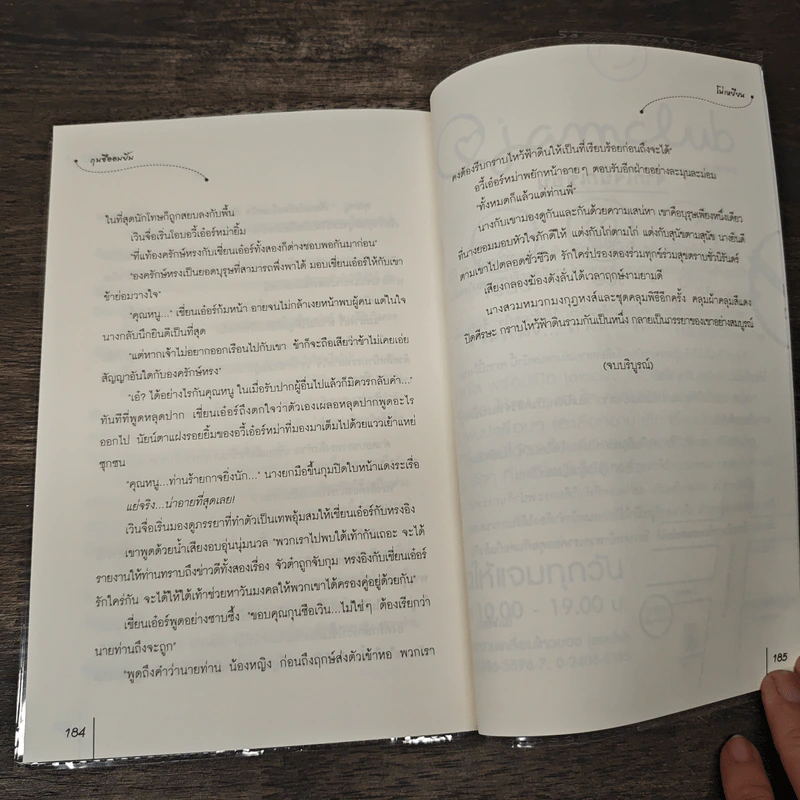 กุนซือออมยิ้ม
ในที่สุดนักโทษก็ถูกสยบลงกับพื้น
เวินจื่อเริ่นโอบอวี้เอ๋อร์หม่ายิ้ม
"ที่แท้องครักษ์หรงกับเชี่ยนเอ๋อร์ทั้งสองก็ต่างชอบพอกันมาก่อน"
"องครักษ์หรงเป็นยอดบุรุษที่สามารถพึ่งพาได้ มอบเชี่ยนเอ๋อร์ให้กับเขา
ข้าย่อมวางใจ"
"คุณหนู..." เชี่ยนเอ๋อร์ก้มหน้า อายจนไม่กล้าเงยหน้าพบผู้คน แต่ในใจ
นางกลับนึกยินดีเป็นที่สุด
"แต่หากเจ้าไม่อยากออกเรือนไปกับเขา ข้าก็จะถือเสียว่าข้าไม่เคยเอ่ย
สัญญาอันใดกับองครักษ์หรง"
"เอ๋? ได้อย่างไรกันคุณหนู ในเมื่อรับปากผู้อื่นไปแล้วก็มิควรกลับคำ..."
ทันทีที่พูดหลุดปาก เชี่ยนเอ๋อร์ถึงตกใจว่าตัวเองเผลอหลุดปากพูดอะไร
ออกไป นัยน์ตาแฝงรอยยิ้มของอวี้เอ๋อร์หม่าที่มองมาเต็มไปด้วยแววเย้าแหย่
ซุกซน
"คุณหนู...ท่านร้ายกาจยิ่งนัก..." นางยกมือขึ้นกุมปิดใบหน้าแดงระเรื่อ
แย่จริง...น่าอายที่สุดเลย!!
เวินจื่อเริ่นมองดูภรรยาที่ทำตัวเป็นเทพอุ้มสมให้เชี่ยนเอ๋อร์กับหรงอิง
เขาพูดด้วยน้ำเสียงอบอุ่นนุ่มนวล "พวกเราไปพบใต้เท้ากันเถอะ จะได้
รายงานให้ท่านทราบถึงข่าวดีทั้งสองเรื่อง จัวต๋าถูกจับกุม หรงอิงกับเชี่ยนเอ๋อร์
รักใคร่กัน จะได้ให้ใต้เท้าช่วยหาวันมงคลให้พวกเขาได้ครองคู่อยู่ด้วยกัน"
เชี่ยนเอ๋อร์พูดอย่างซาบซึ้ง "ขอบคุณกุนซือเวิน...ไม่ใช่ๆ ต้องเรียกว่า
นายท่านถึงจะถูก"
"พูดถึงคำว่านายท่าน น้องหญิง ก่อนถึงฤกษ์ส่งตัวเข้าหอ พวกเรา
184
โม่เหยียน
คงต้องรีบกราบไหว้ฟ้าดินให้เป็นที่เรียบร้อยก่อนถึงจะได้"
อวี้เอ๋อร์หม่าพยักหน้าอายๆ ตอบรับอีกฝ่ายอย่างละมุนละม่อม
"ทั้งหมดก็แล้วแต่ท่านพี่"
นางกับเขามองดูกันและกันด้วยความเสน่หา เขาคือบุรุษเพียงหนึ่งเดียว
ที่นางยอมมอบหัวใจภักดีให้ แต่งกับไก่ตามไก่ แต่งกับสุนัขตามสุนัข นางยินดี
ตามเขาไปตลอดชั่วชีวิต รักใคร่ปรองดองร่วมทุกข์ร่วมสุขตราบชั่วนิรันดร์
เสียงกลองฆ้องดังลั่นได้เวลาฤกษ์งามยามดี
นางสวมหมวกมงกุฎหงส์และชุดคลุมพิธีอีกครั้ง คลุมผ้าคลุมสีแดง
ปิดศีรษะ กราบไหว้ฟ้าดินรวมกันเป็นหนึ่ง กลายเป็นภรรยาของเขาอย่างสมบูรณ์
(จบบริบูรณ์)
185